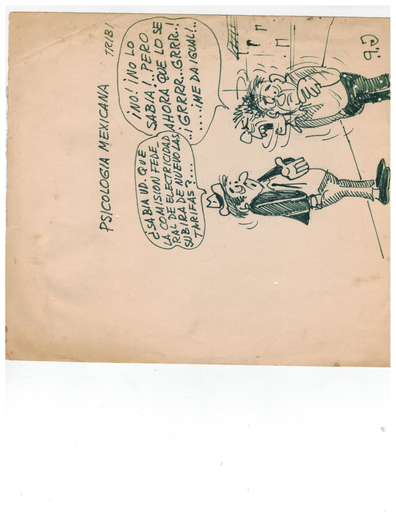 PSICOLOGIA MEXICANA
¿SABIA UD. QUE
LA COMISION FEDE_
RAL DE ELECTRICIDAD
SUBIRA DE NUEVO LAS
TARIFAS?....
¡NO! ¡NO LO
SABIA! PERO
AHORA QUE LO SE
¡GRRRR..GRRR..!
....¡ME DA IGUAL!..